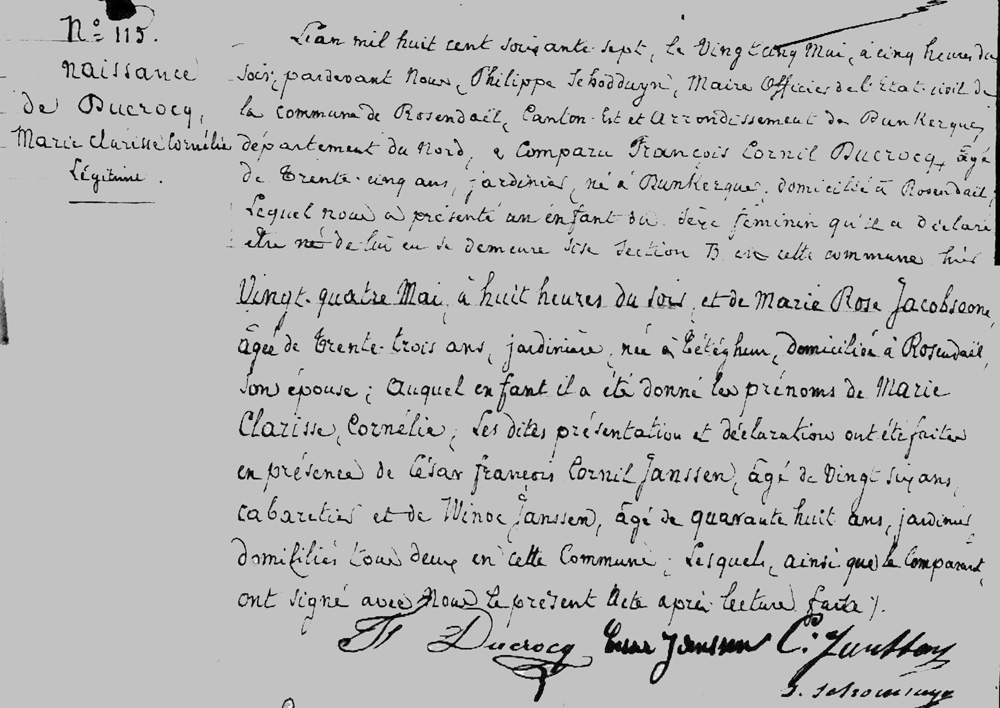 N° 115.
Naissance
de Ducrocq,
Marie Clarisse Cornélie
Légitime.
L'an mil huit cent soixante-sept, le Vingt cinq Mai, à cinq heures du
soir, pardevant Nous, Philippe Schodduyn, Maire Officier de l'Etat-civil de
la commune de Rosendaël, Canton-Est et Arrondissement de Dunkerque,
département du Nord, a comparu François Cornil Ducrocq, âgé
de Trente-cinq ans, jardinier, né à Dunkerque, domicilié à Rosendaël,
Lequel nous a présenté un enfant du sexe féminin qu'il a déclaré
être né de lui en sa demeure sise section B en cette commune hier
Vingt-quatre Mai, à huit heures du soir, et de Marie Rose Jacobsoone,
âgée de Trente-trois ans, jardinière, née à Tétéghem, domiciliée à Rosendaël,
son épouse; auquel enfant il a été donné les prénoms de Marie
Clarisse, Cornélie; Les dites présentation et déclaration ont été faites
en présence de César François Cornil Janssen, âgé de Vingt six ans,
cabaretier et de Winoc Janssen, âgé de quarante huit ans, jardinier
domiciliés tous deux en cette Commune; Lesquels, ainsi que le Comparant,
ont signé avec Nous le présent Acte après lecture faite /.
Ducrocq Cesar Janssen